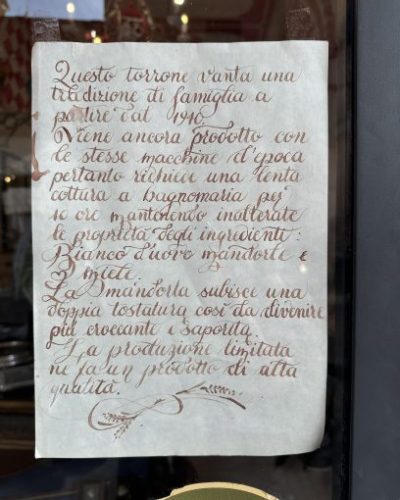 Questo torrone vanta una
tradizione di famiglia a
partire dal 1910
Viene ancora prodotto con
le stesse macchine d'epoca
pertanto richiede una lenta
cottura a bagnomaria per
10 ore mantenendo inalterate
le proprietà degli ingredienti:
Bianco d'uovo mandorle e
miele.
La mandorla subisce una
doppia tostatura così da divenire
più croccante e saporita.
La produzione limitata
ne fa un prodotto di alta
qualità.